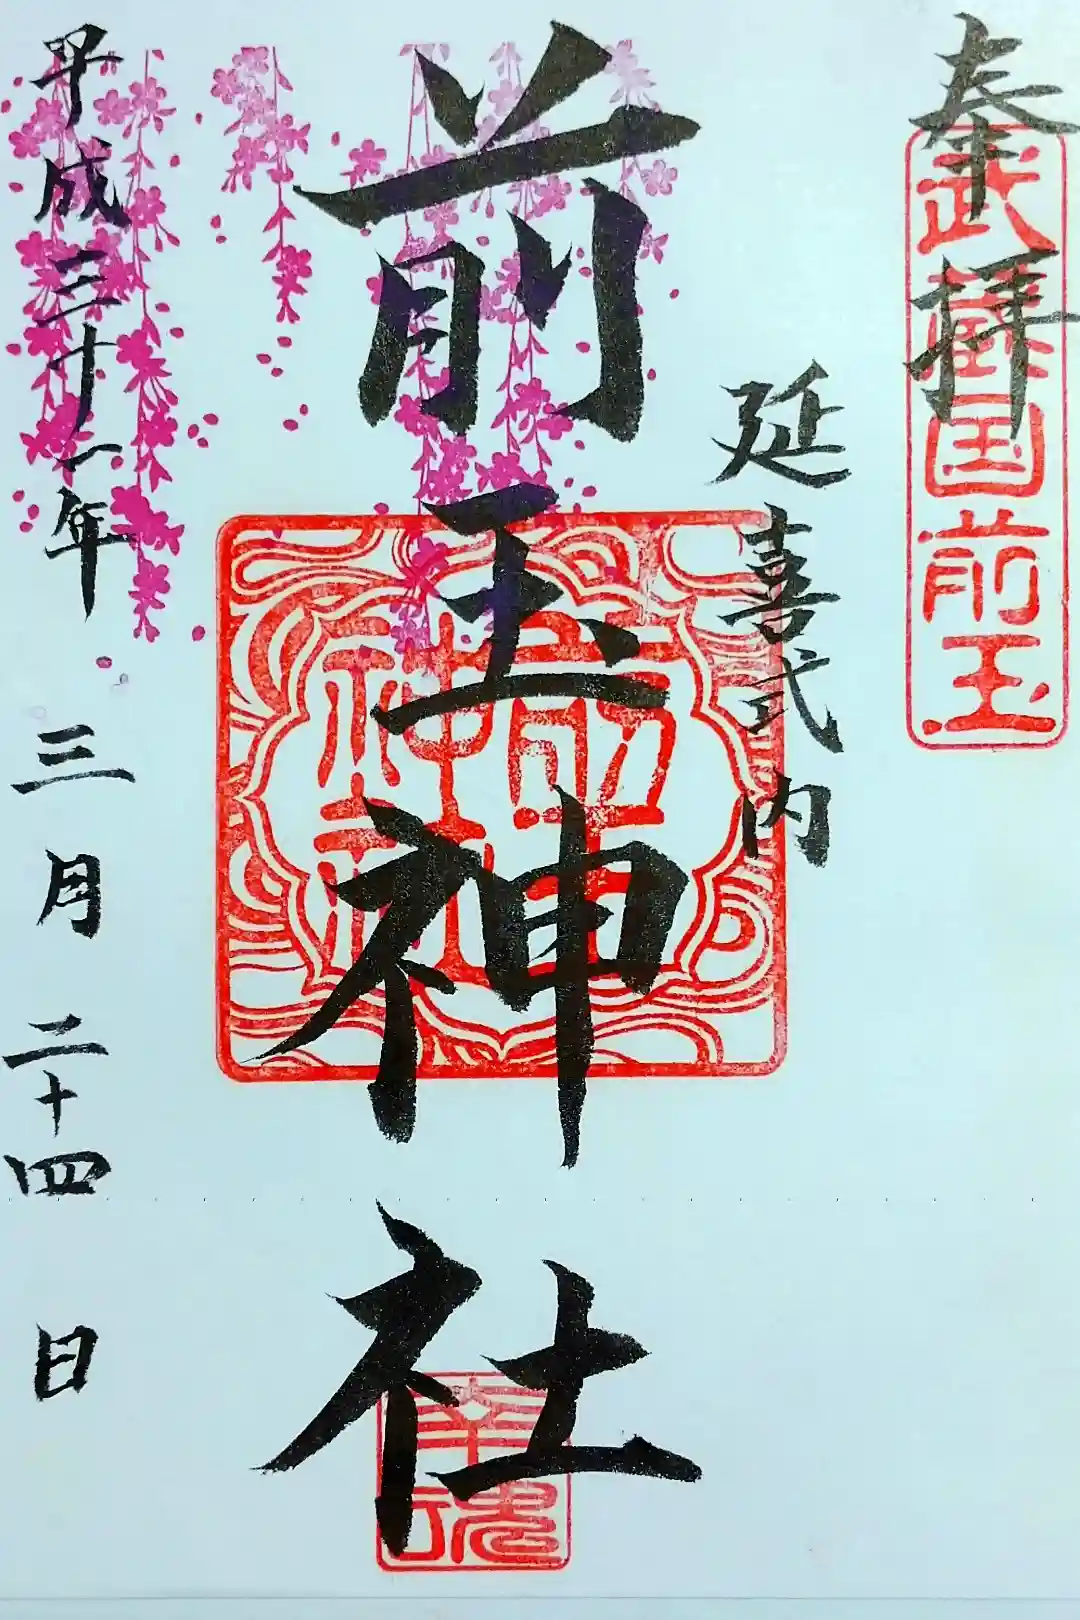 奉拝
武蔵国前玉
延喜式内
前玉神社
前玉神社
平成三十一年三月二十四日